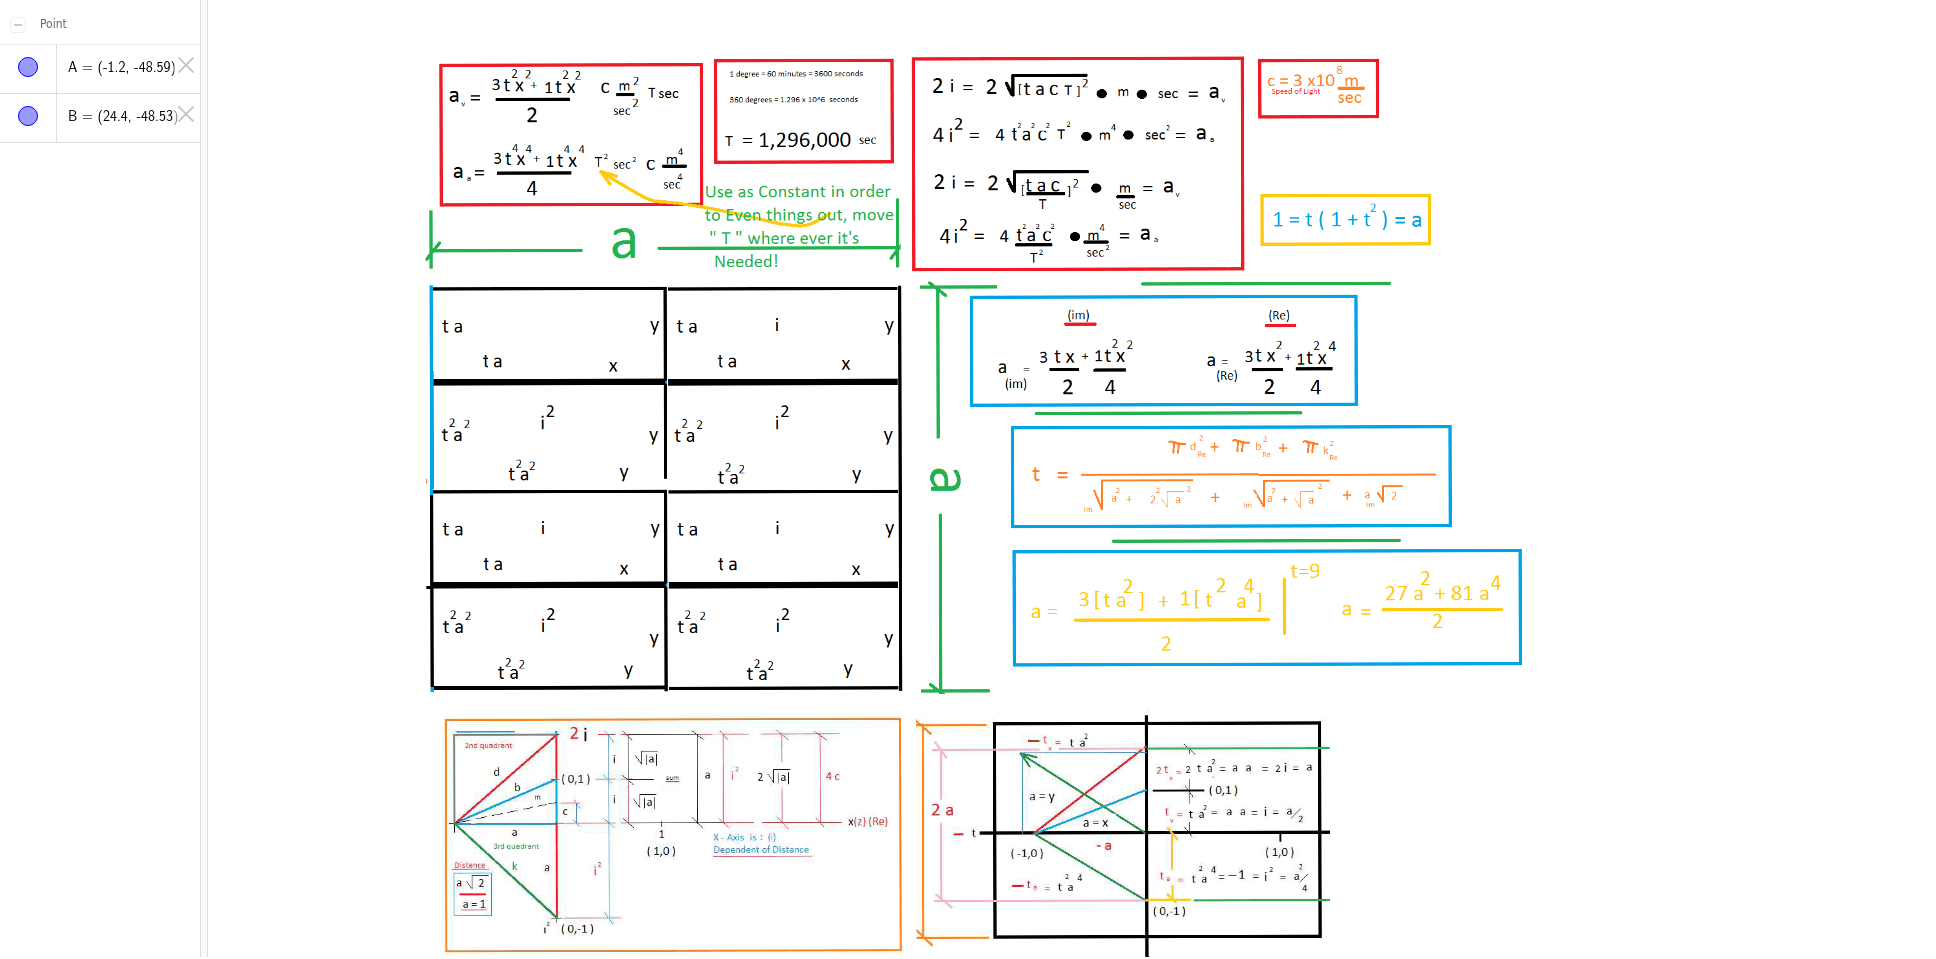 Point
A = (-1.2, -48.59)
B = (24.4, -48.53)
a_v = (3t²x² + 1t²x²)/2 c m²/sec² T sec
a_a = (3t⁴x⁴ + 1t⁴x⁴)/4 T² sec² c m⁴/sec⁴
1 degree = 60 minutes = 3600 seconds
360 degrees = 1.296 x 10^6 seconds
T = 1,296,000 sec
Use as Constant in order
to Even things out, move
" T " where ever it's
Needed!
a
2 i = 2 √[t a c T]² • m • sec = a_v
4 i² = 4 t²a²c² T² • m⁴ • sec² = a_a
2 i = 2 √[t a c / T]² • m/sec = a_v
4i² = 4 t²a²c²/T² • m⁴/sec² = a_a
c = 3 x10⁸ m/sec
Speed of Light
1 = t ( 1 + t² ) = a
t a y t a i y
t a x t a x
t²a² i² y t²a² i² y
t²a² y t²a² y
t a i y t a i y
t a x t a x
t²a² i² y t²a² i² y
t²a² y t²a² y
a
(im) (Re)
a (im) = 3 t x/2 + 1t²x²/4
a (Re) = 3t x²/2 + 1t²x⁴/4
t = (π d²Re + π b²Re + π k²Re) / (Im √a² + 2²√a² + Im √a² + √a² + a Im √2)
a = (3 [ t a² ] + 1 [ t² a⁴ ])/2 | t=9
a = (27 a² + 81 a⁴)/2
2nd quadrant
2 i
d
b
m
( 0,1 )
c
a
3rd quadrant
k
a
Distance
a √2
a = 1
i² ( 0,-1 )
i
i
i²
√|a|
sum
√|a|
1
( 1,0 )
a
i²
2 √|a|
4 c
x(z) (Re)
X - Axis is : (i)
Dependent of Distance
2 a
– t_v = t a²
a = y
a = x
– t
(-1,0 )
- a
– t_a = t² a⁴
2t_v = 2 t a² = a a = 2 i = a
( 0,1 )
t_v = t a² = a a = i = a/2
( 1,0 )
t_a = t² a⁴ = –1 = i² = a²/4
( 0,-1 )